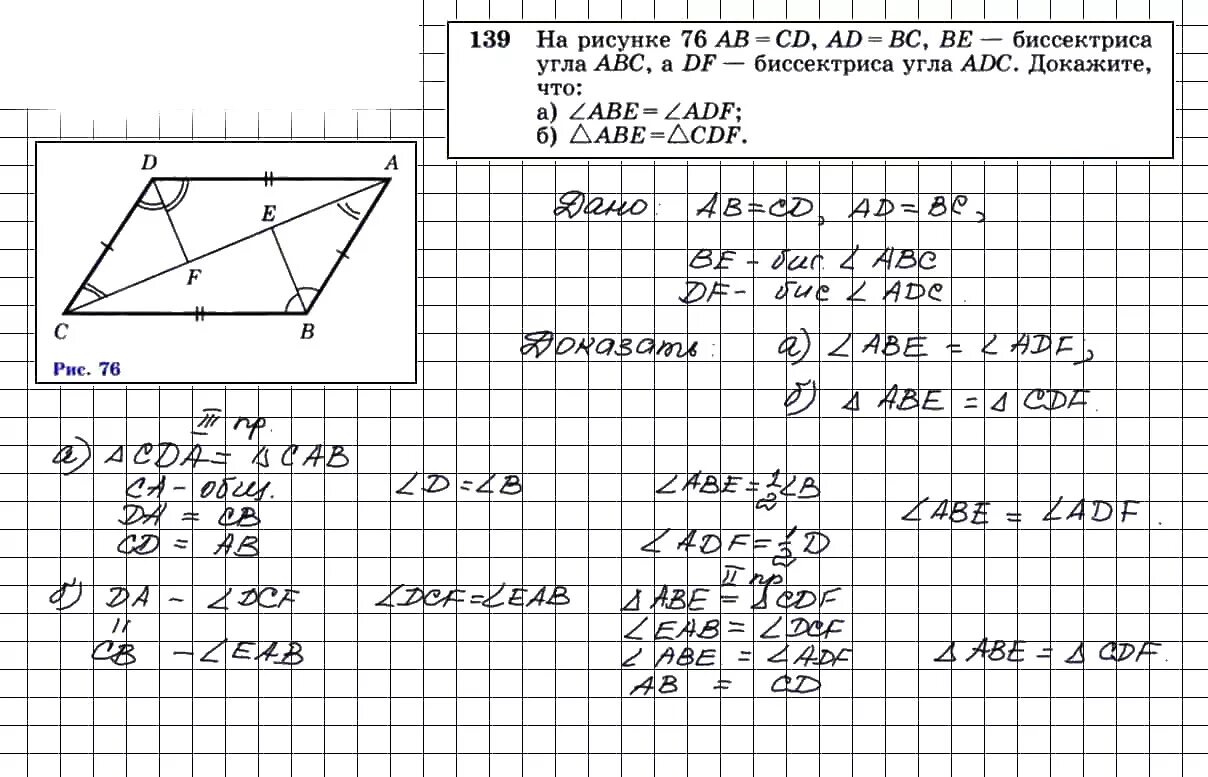 139 На рисунке 76 AB = CD, AD = BC, BE — биссектриса
угла ABC, а DF — биссектриса угла ADC. Докажите,
что:
а) ∠ABE = ∠ADF;
б) △ABE = △CDF.
D A
E
F
C B
Рис. 76
Дано: AB = CD, AD = BC,
BE – бис. ∠ ABC
DF – бис ∠ ADC.
Доказать: а) ∠ ABE = ∠ ADF,
б) △ ABE = △ CDF.
III пр.
а) △ CDA = △ CAB
CA – общ. ∠D = ∠B ∠ABE = 1/2 ∠B
DA = CB ∠ABE = ∠ADF.
CD = AB ∠ADF = 1/2 D
II пр
б) DA – ∠DCF ∠DCF = ∠EAB △ ABE = △ CDF
||
CB – ∠EAB ∠EAB = ∠DCF
∠ABE = ∠ADF △ ABE = △ CDF.
AB = CD